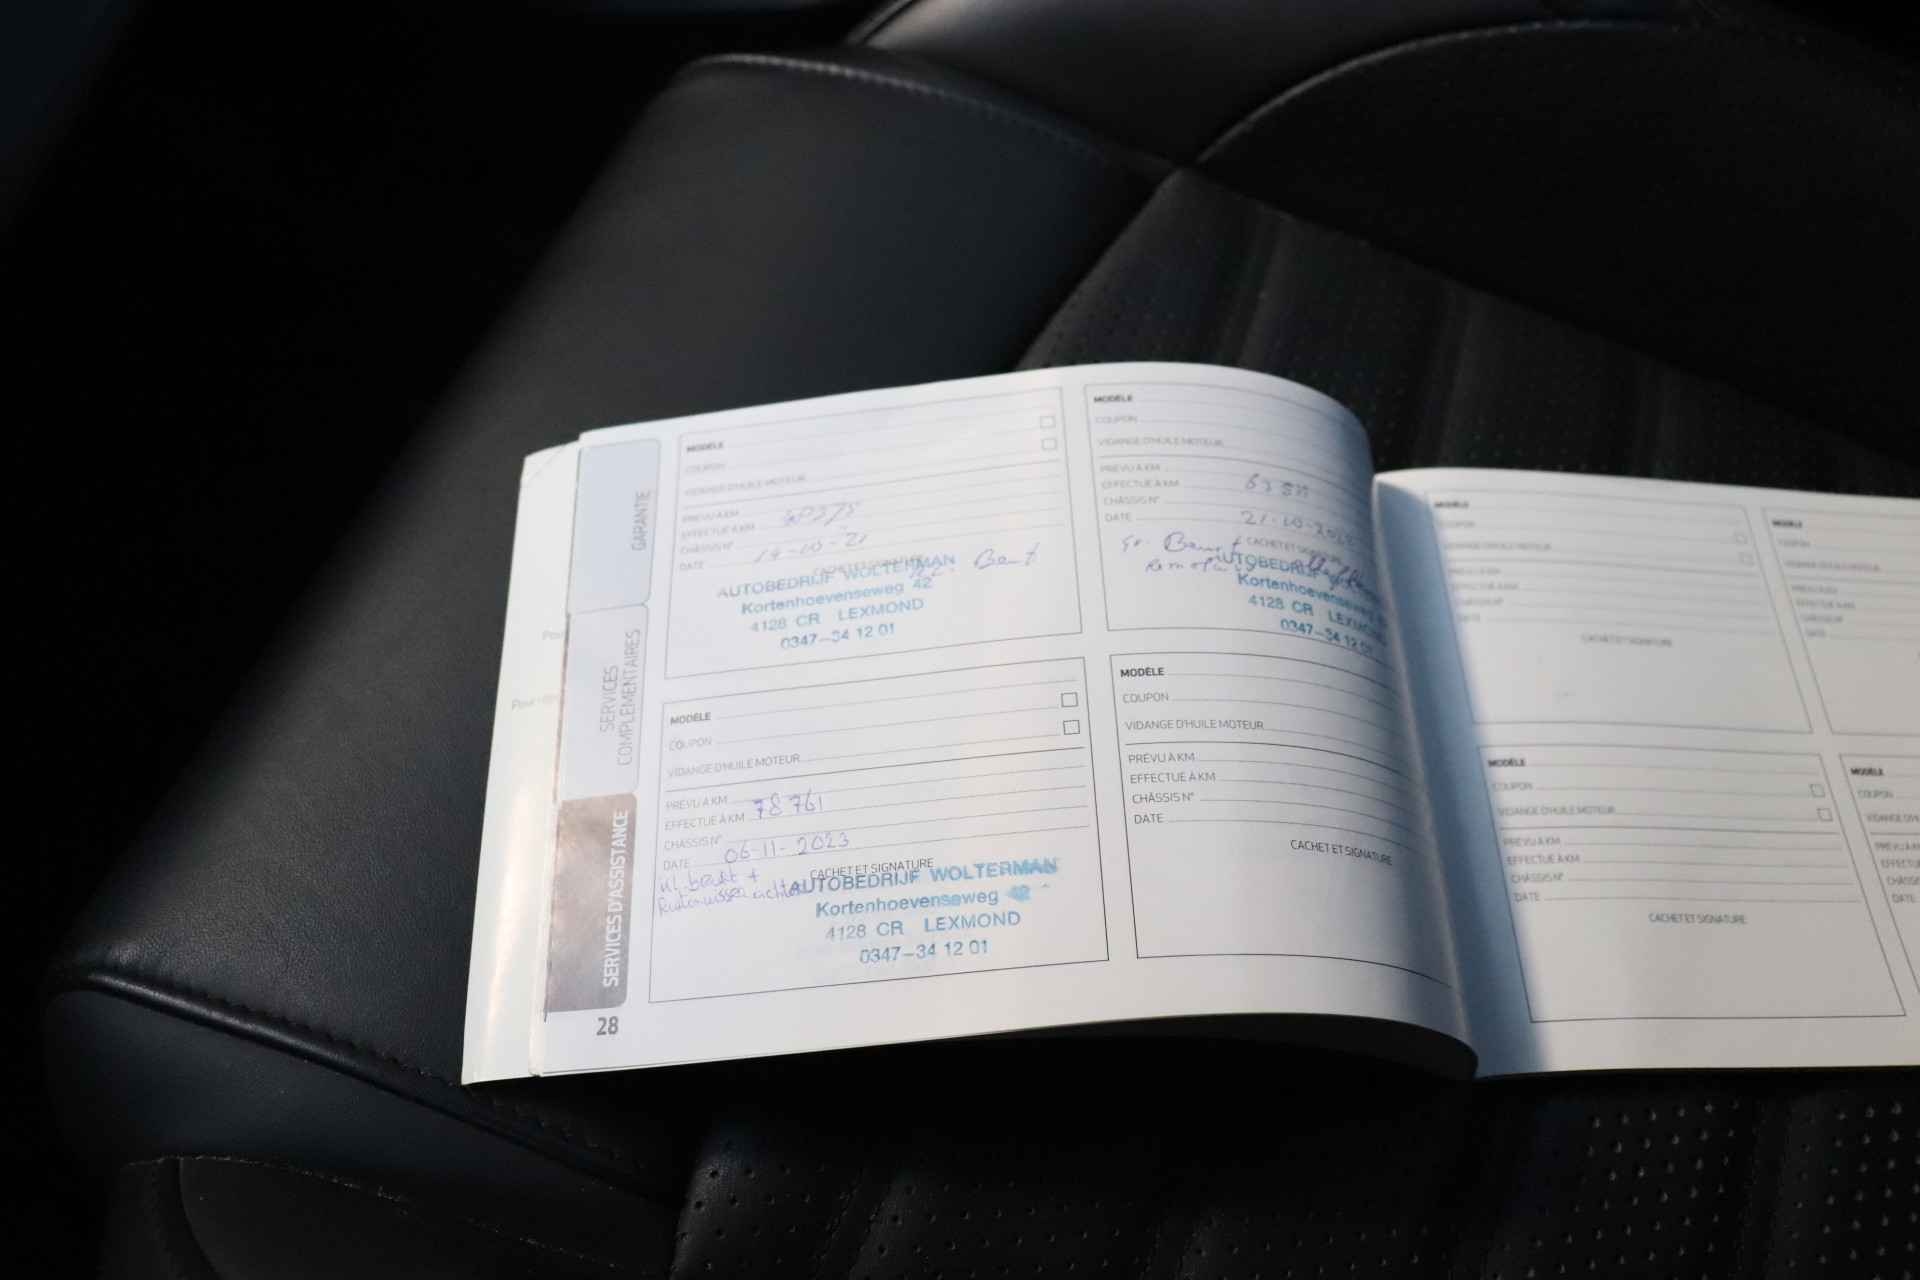 GARANTIE
SERVICES
COMPLÉMENTAIRES
SERVICES D'ASSISTANCE
28
MODÈLE
COUPON
VIDANGE D'HUILE MOTEUR
PRÉVU À KM
EFFECTUÉ À KM
CHÂSSIS N°
DATE 14-10-21
CACHET ET SIGNATURE
AUTOBEDRIJF WOLTERMAN
Kortenhoevenseweg 42
4128 CR LEXMOND
0347-34 12 01
MODÈLE
COUPON
VIDANGE D'HUILE MOTEUR
PRÉVU À KM
EFFECTUÉ À KM
CHÂSSIS N°
DATE 21-10-2022
CACHET ET SIGNATURE
AUTOBEDRIJF
Kortenhoevenseweg
4128 CR LEXMOND
0347-34 12 01
MODÈLE
COUPON
VIDANGE D'HUILE MOTEUR
PRÉVU À KM
EFFECTUÉ À KM 78761
CHÂSSIS N°
DATE 06-11-2023
CACHET ET SIGNATURE
Kl. beurt +
Ruitenwisser achter
AUTOBEDRIJF WOLTERMAN
Kortenhoevenseweg 42
4128 CR LEXMOND
0347-34 12 01
MODÈLE
COUPON
VIDANGE D'HUILE MOTEUR
PRÉVU À KM
EFFECTUÉ À KM
CHÂSSIS N°
DATE
CACHET ET SIGNATURE
MODÈLE
COUPON
VIDANGE D'HUILE MOTEUR
PRÉVU À KM
EFFECTUÉ À KM
CHÂSSIS N°
DATE
CACHET ET SIGNATURE
MODÈLE
COUPON
VIDANGE D'HUILE MOTEUR
PRÉVU À KM
EFFECTUÉ À KM
CHÂSSIS N°
DATE
MODÈLE
COUPON
VIDANGE D'HUILE MOTEUR
PRÉVU À KM
EFFECTUÉ À KM
CHÂSSIS N°
DATE
CACHET ET SIGNATURE
MODÈLE
COUPON
DATE